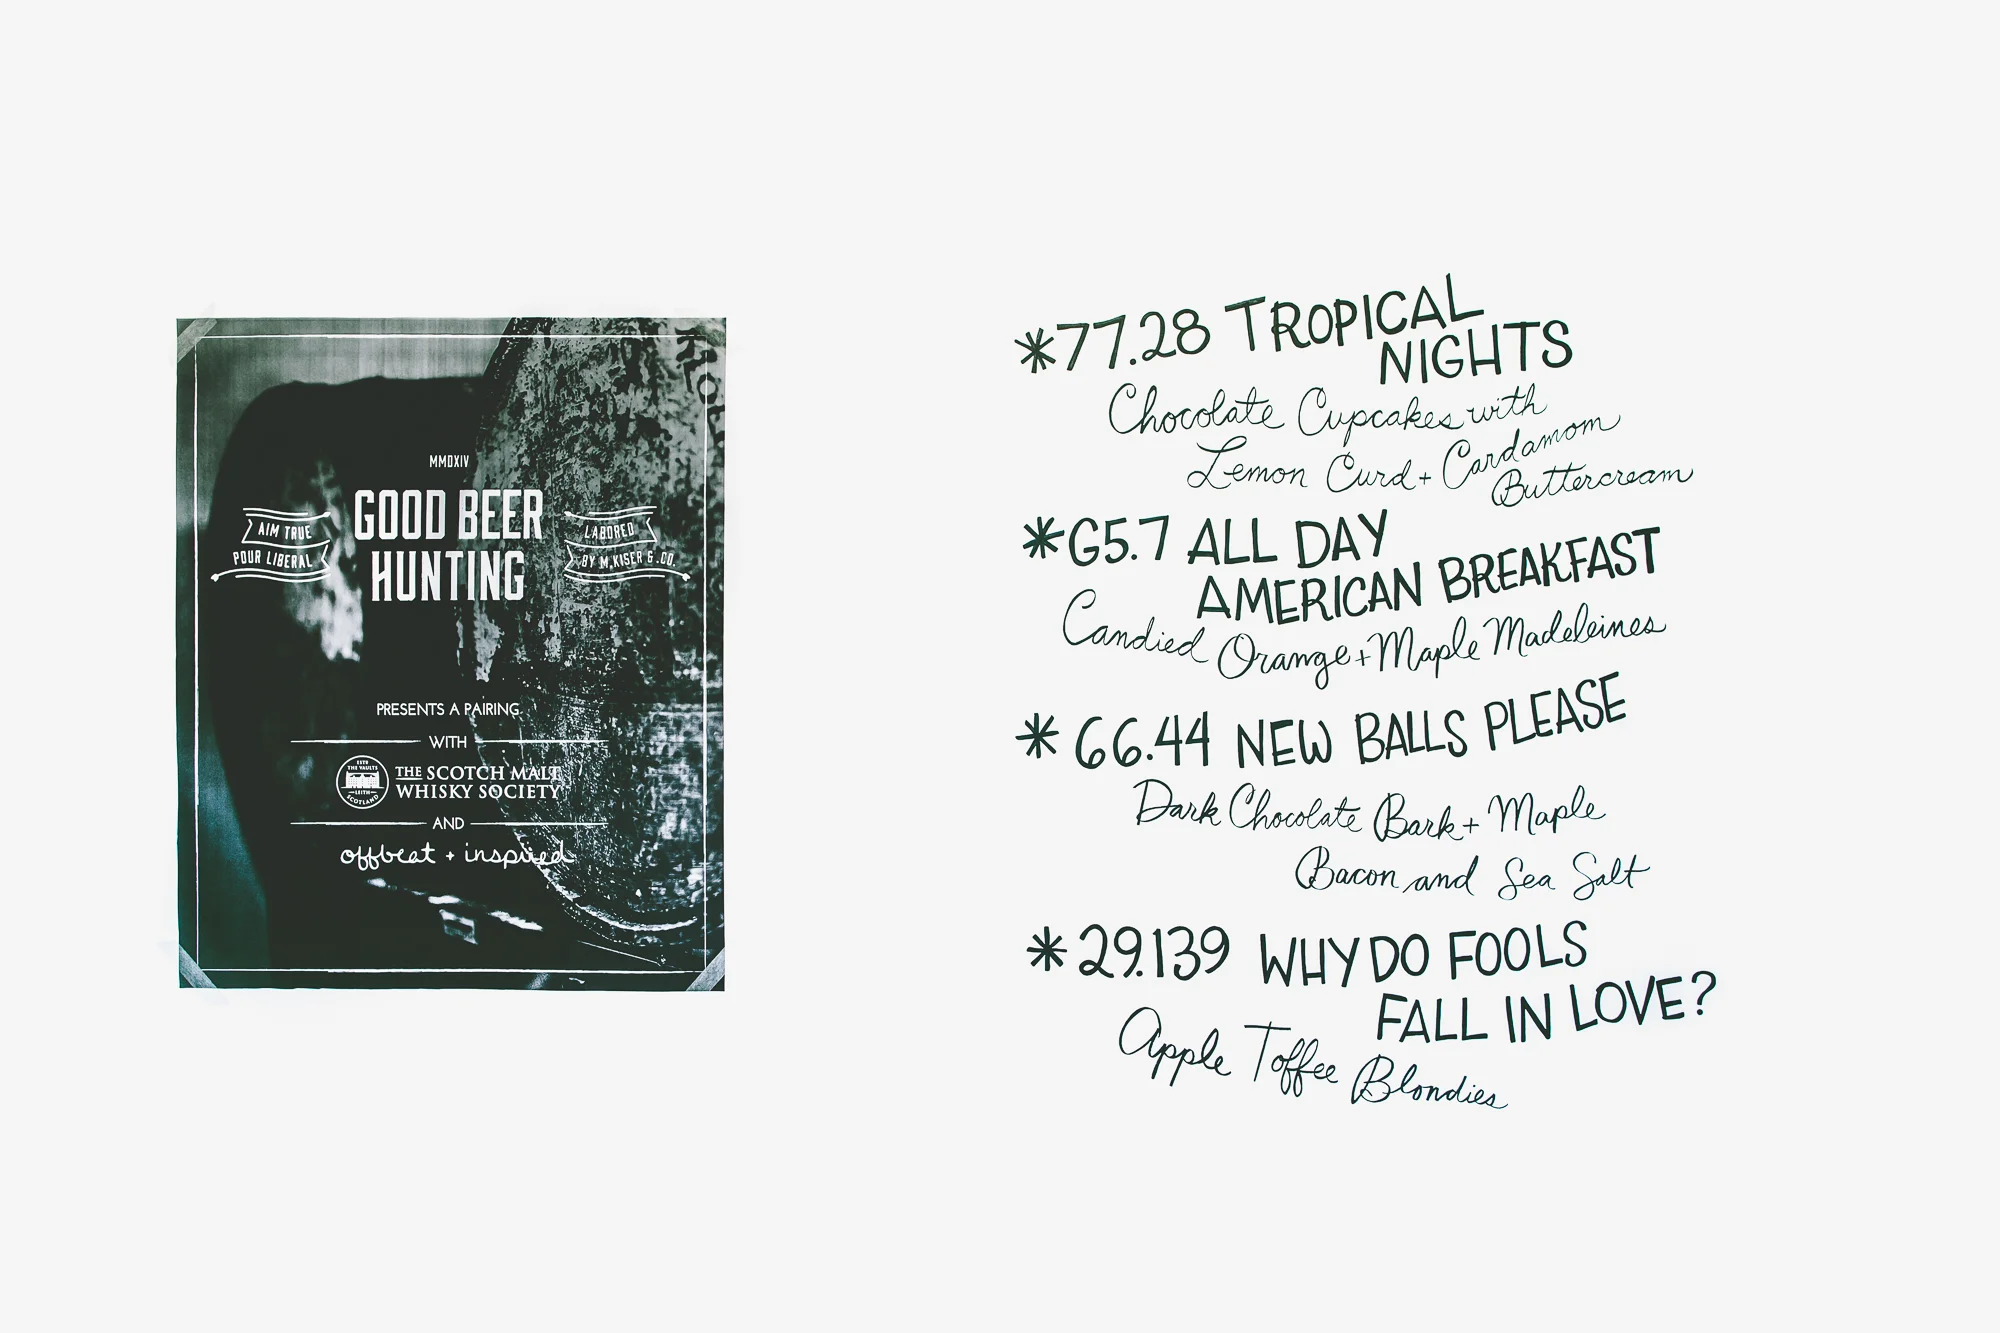 MMDXIV
GOOD BEER
HUNTING
AIM TRUE
POUR LIBERAL
LABORED
BY M.KISER & .CO.
PRESENTS A PAIRING
WITH
ESTD
THE VAULTS
LEITH
SCOTLAND
THE SCOTCH MALT
WHISKY SOCIETY
AND
offbeat + inspired
*77.28 TROPICAL
NIGHTS
Chocolate Cupcakes with
Lemon Curd + Cardamom
Buttercream
*G5.7 ALL DAY
AMERICAN BREAKFAST
Candied Orange + Maple Madeleines
*66.44 NEW BALLS PLEASE
Dark Chocolate Bark + Maple
Bacon and Sea Salt
*29.139 WHY DO FOOLS
FALL IN LOVE?
Apple Toffee Blondies